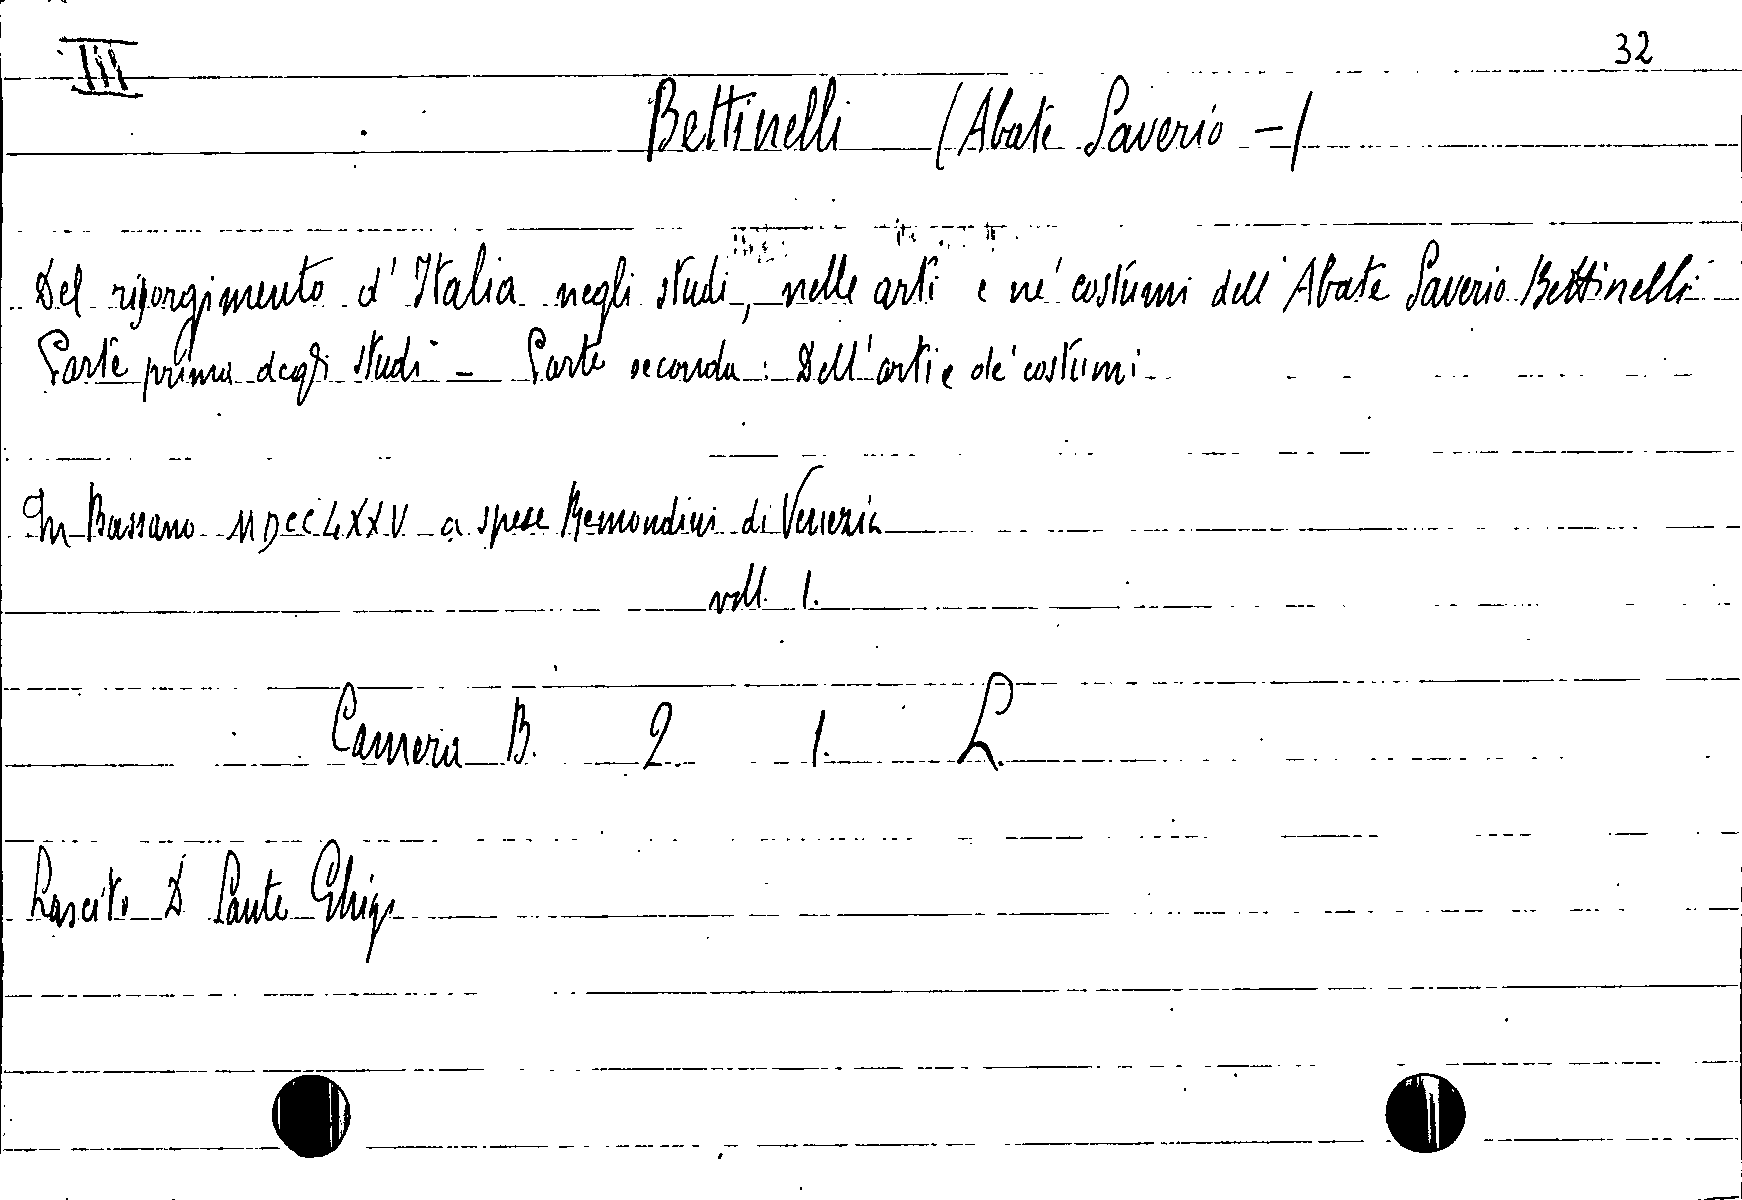 III
32
Bettinelli (Abate Saverio -)
Del risorgimento d' Italia negli studi, nelle arti e ne' costumi dell'Abate Saverio Bettinelli
Parte prima degli studi - Parte seconda: Dell'arti e de' costumi
In Bassano MDCCLXXV a spese Remondini di Venezia
voll. 1.
Camera B. 2. 1. L.
Lascito D Sante Ghigi